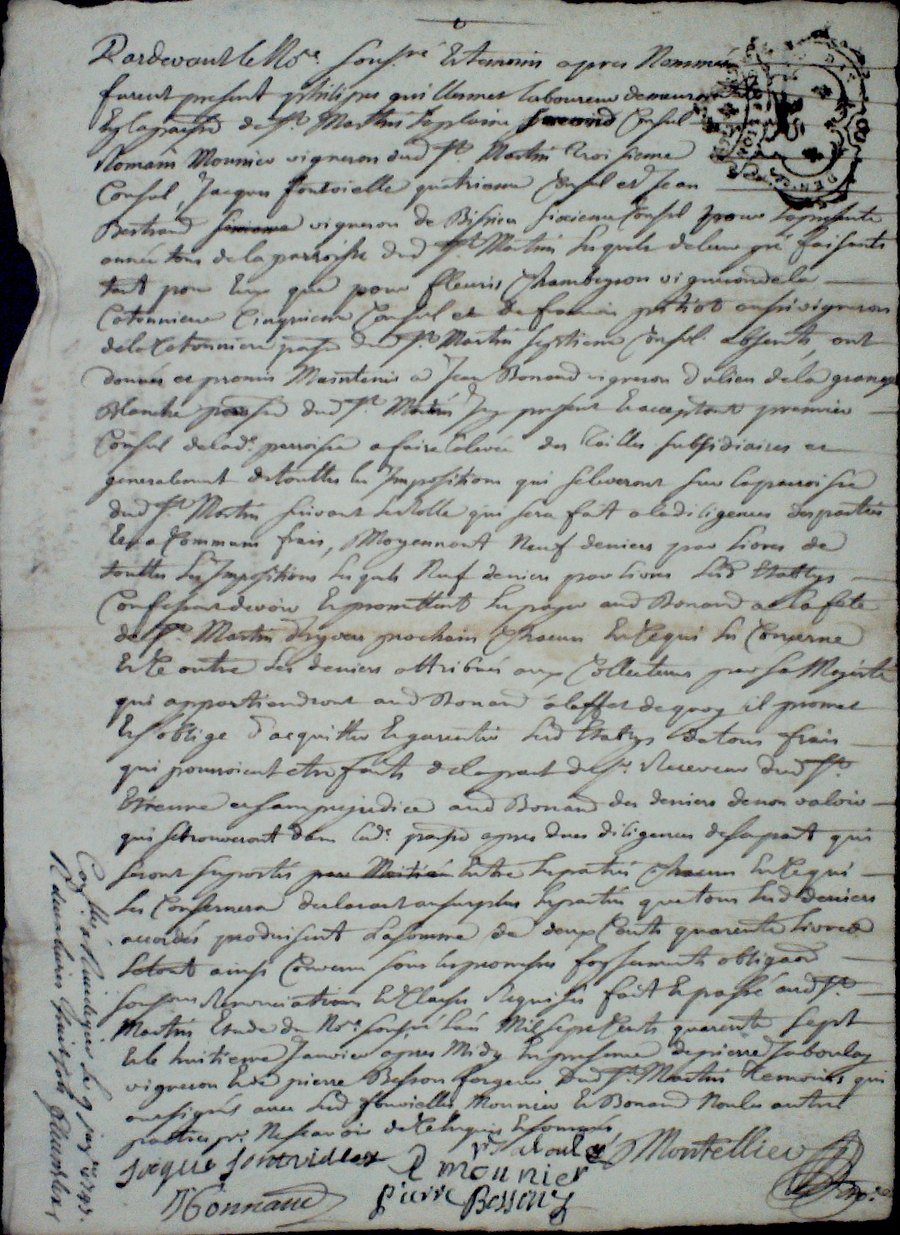 Pardevant le No.re Sousné Et temoins apres Nommés
furent present philipes guillermet laboureur demeurant
En la parsse de St. Martin la plaine Second Consul
Romain Mounier vigneron dud St. Martin troisieme
Consul, Jacques fontvielle quatrieme Consul et Jean
Bertrand vigneron de Bissieu sixieme Consul pour la presente
année tous de la parroisse dud St. Martin Lesquels de leur gré faisants
tant pour Eux que pour fleuris Chambeyron vigneron de la
Cotonniere Cinquieme Consul et francois petiot aussi vigneron
de la Cotonniere parsse dud St. Martin Septieme Consul absents, ont
donné et promis Maintenir a Jean Bonand vigneron du lieu de la grange
Blanche parsse dud St. Martin Icy present Et acceptant premier
Consul de lad. parroisse a faire la levée des tailles subsidiaires et
generalement de touttes les Impositions qui se leveront sur la parroisse
dud St. Martin suivant le Rolle qui sera fait a la diligence des parties
Et a Communs frais, Moyennant Neuf deniers par Livres de
touttes les Impositions Lesquels Neuf deniers par livres Lesd Etablys
Confessent devoir Et promettent les payer aud Bonand a la fete
de St. Martin d'hyver prochain Chacun En Ce qui les Concerne
Et Ce outre les deniers attribués aux Collecteurs par Sa Majesté
qui appartiendront aud Bonand a l'effet de quoy il promet
Et s'oblige d'acquitter Et garentir Lesd Etablys de tous frais
qui pourroient etre faits de la part du Sr. Receveur dud St.
Etienne et sans prejudice aud Bonand des deniers de non valoir
qui se trouveront dans lad. parsse apres dues diligences de sa part qui
seront suportés Entre les parties Chacun En Ce qui
les Consernera declarant au surplus les parties que tous lesd deniers
accordés produisent la somme de deux Cents quarente livres
Le tout ainsi Convenu sous les promesses obligaon
sousmis Renonciations Et Clauses Requises fait Et passé aud St.
Martin Etude du No.re sousné l'an Mil sept Cents quarente sept
Et le huitieme Janvier apres Midy En presence de pierre Jaboulay
vigneron Et de pierre Besson forgeur dud St. Martin temoins qui
ont signés avec lesd fonvielle Mounier Et Bonand Non les autres
parties pr. Ne scavoir de Ce Enquis Et sommés
Jacque fontvielle
R mounier
Jaboulé
Montellier
J Bonnand
pierre Besson
Conlé a Rivedegier le 9 janr. 1747.
R douze sols